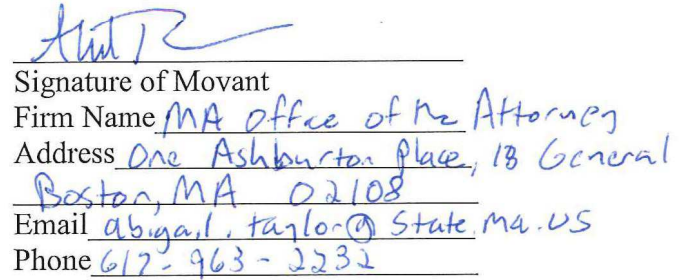 Signature of Movant
Firm Name MA Office of the Attorney
Address One Ashburton Place, 18 General
Boston, MA 02108
Email abigail.taylor@state.ma.us
Phone 617-963-2232